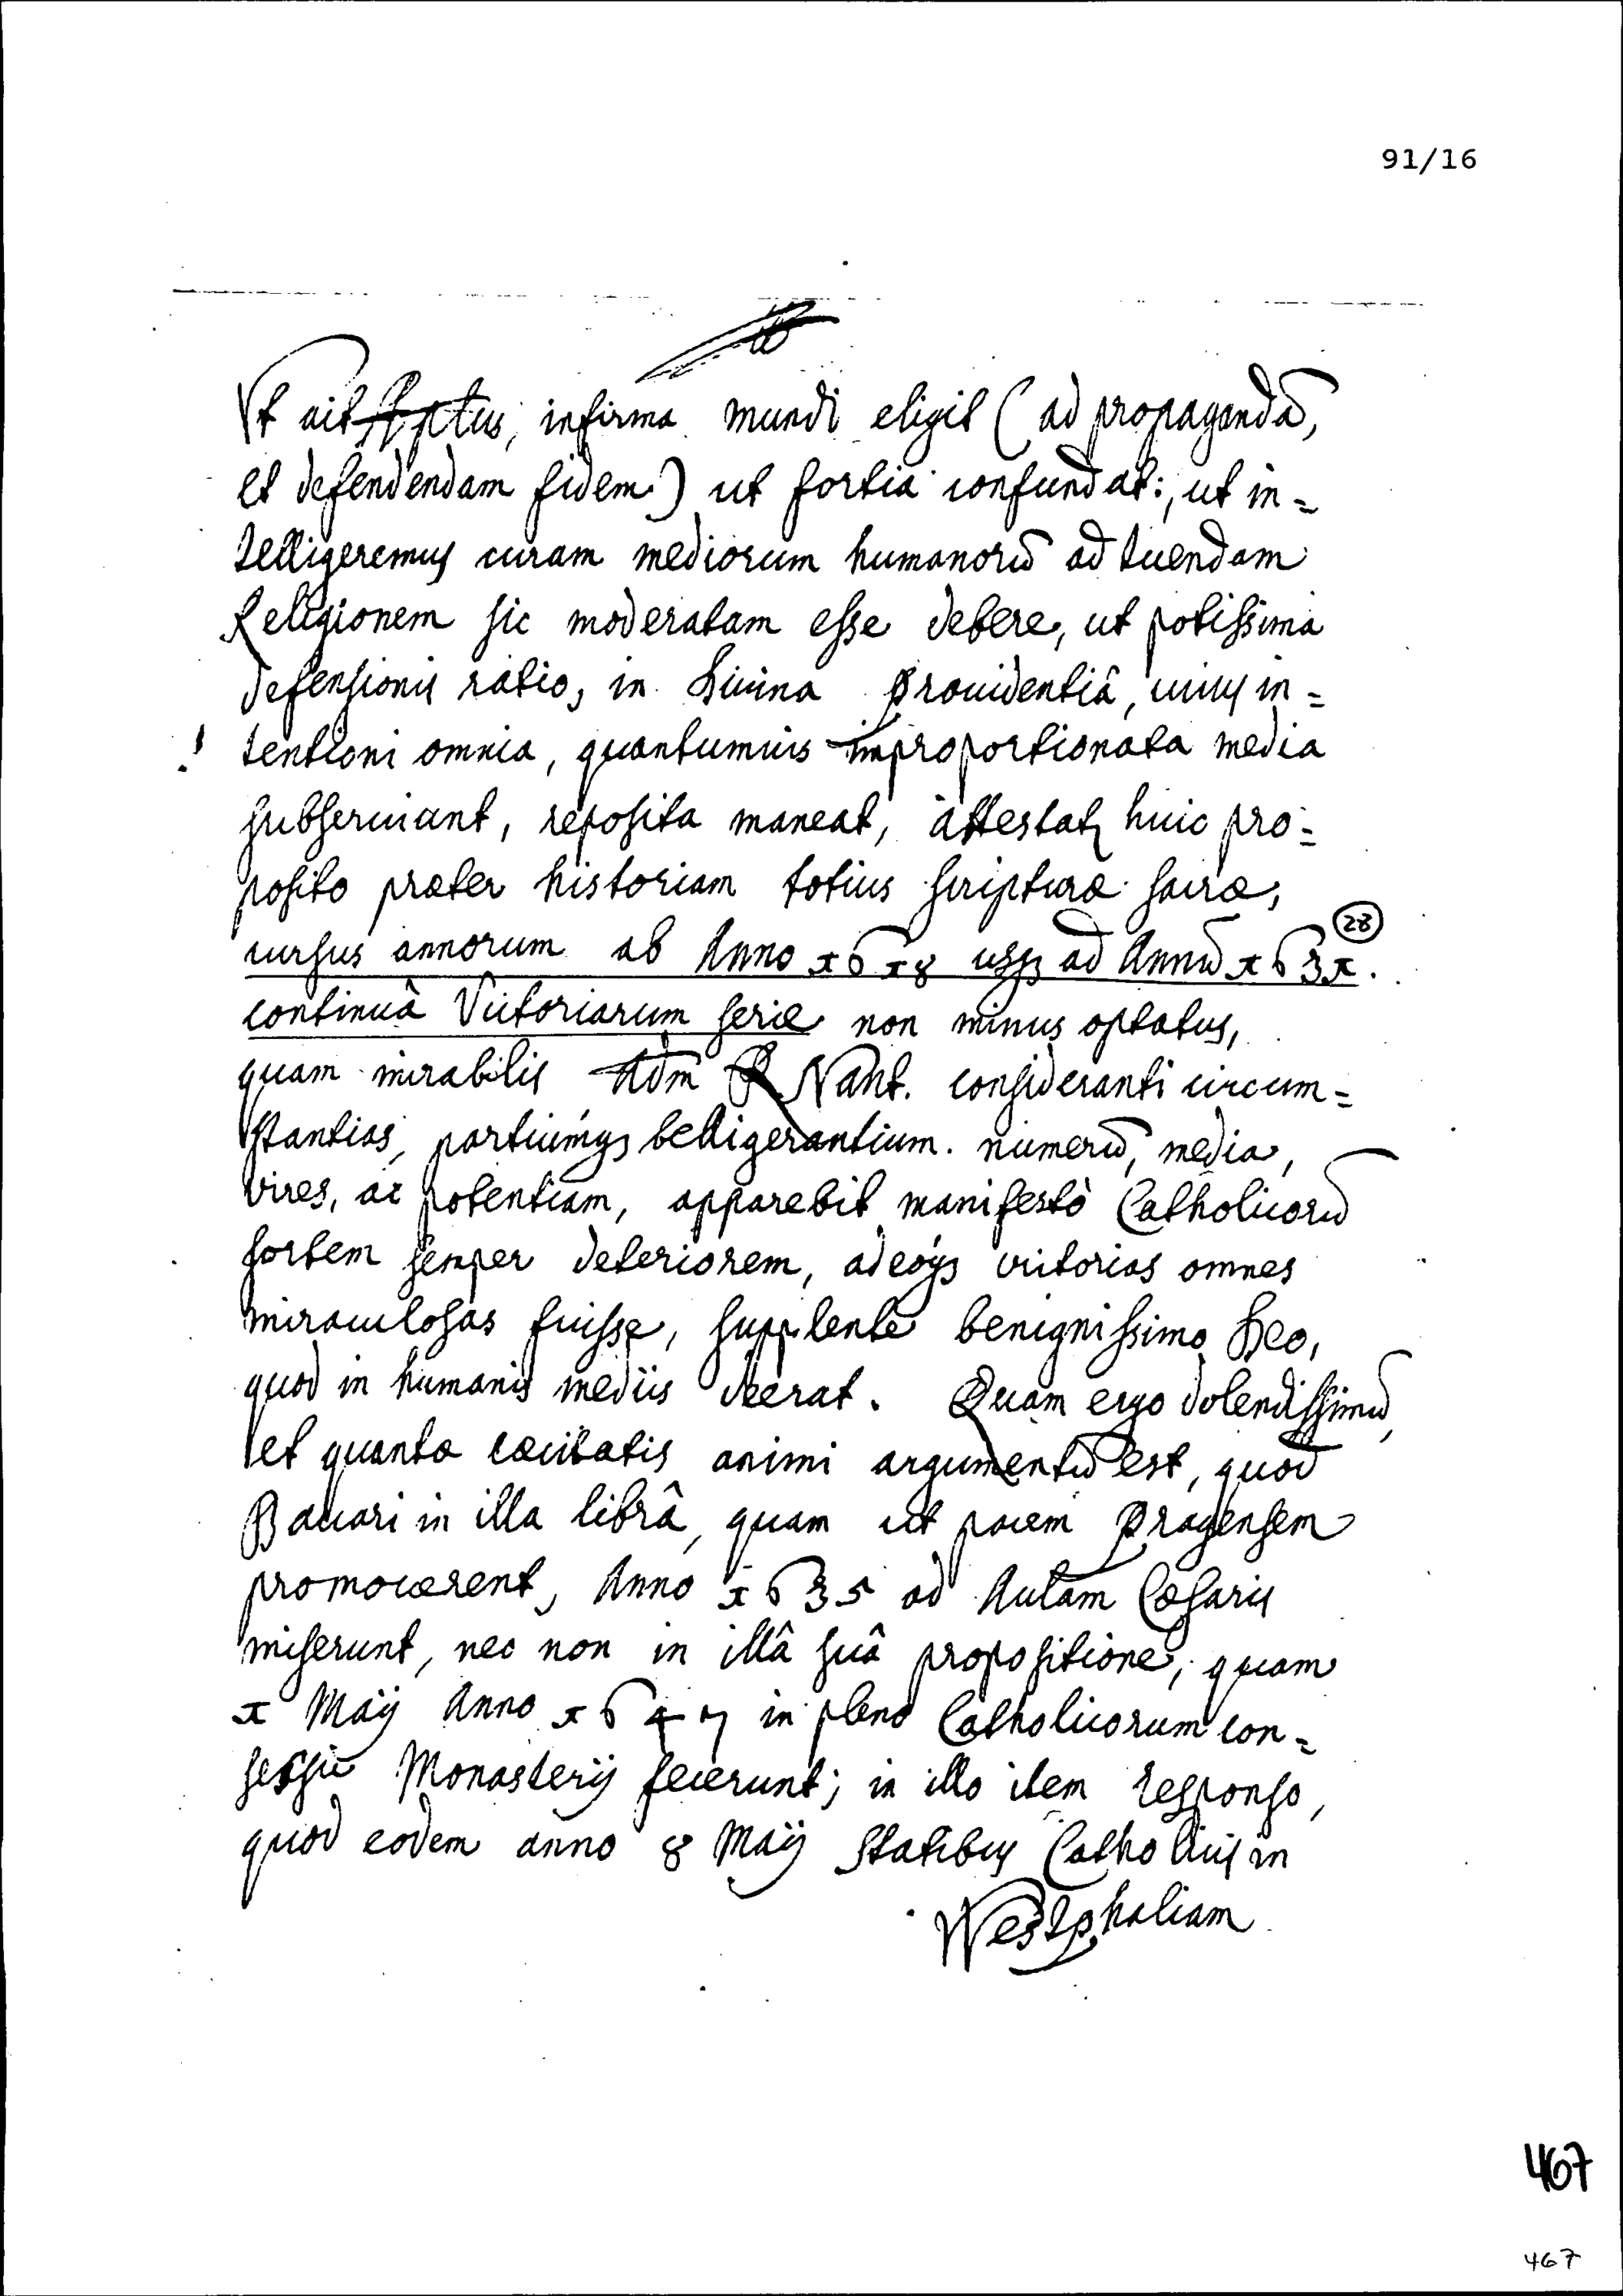 91/16
Vt ait Aptus, infirma mundi eligit (ad propagandā,
et defendendam fidem) ut fortia confundat:, ut in=
telligeremus curam mediorum humanorū ad tuendam
Religionem sic moderatam esse debere, ut potissima
defensionis ratio, in Diuina Prouidentiâ, cuius in=
! tentioni omnia, quantumuis improportionata media
subseruiant, reposita maneat, attestatꝫ huic pro=
posito præter historiam totius scripturæ sacræ,
28
cursus annorum ab Anno 1618 usqꝫ ad Annū 1631.
continuâ Victoriarum serie non minus optatus,
quam mirabilis Adm R Nant. consideranti circum=
stantias, partiumqꝫ belligerantium numerū, media,
vires, ac potentiam, apparebit manifestò Catholicorū
sortem semper deteriorem, adeoqꝫ victorias omnes
miraculosas fuisse, supplente benignissimo Deo,
quod in humanis mediis deerat. Quam ergo dolendissimū,
et quantæ cæcitatis animi argumentū est, quod
Bauari in illa librâ, quam ut pacem Pragensem
promoverent, Anno 1635 ad Aulam Cæsaris
miserunt, nec non in illâ suâ propositione, quam
1 Maÿ Anno 1647 in pleno Catholicorum con=
sessu Monasterÿ fecerunt; in illo item responso,
quod eodem anno 8 Maÿ Statibus Catholicis in
Westphaliam
467
467